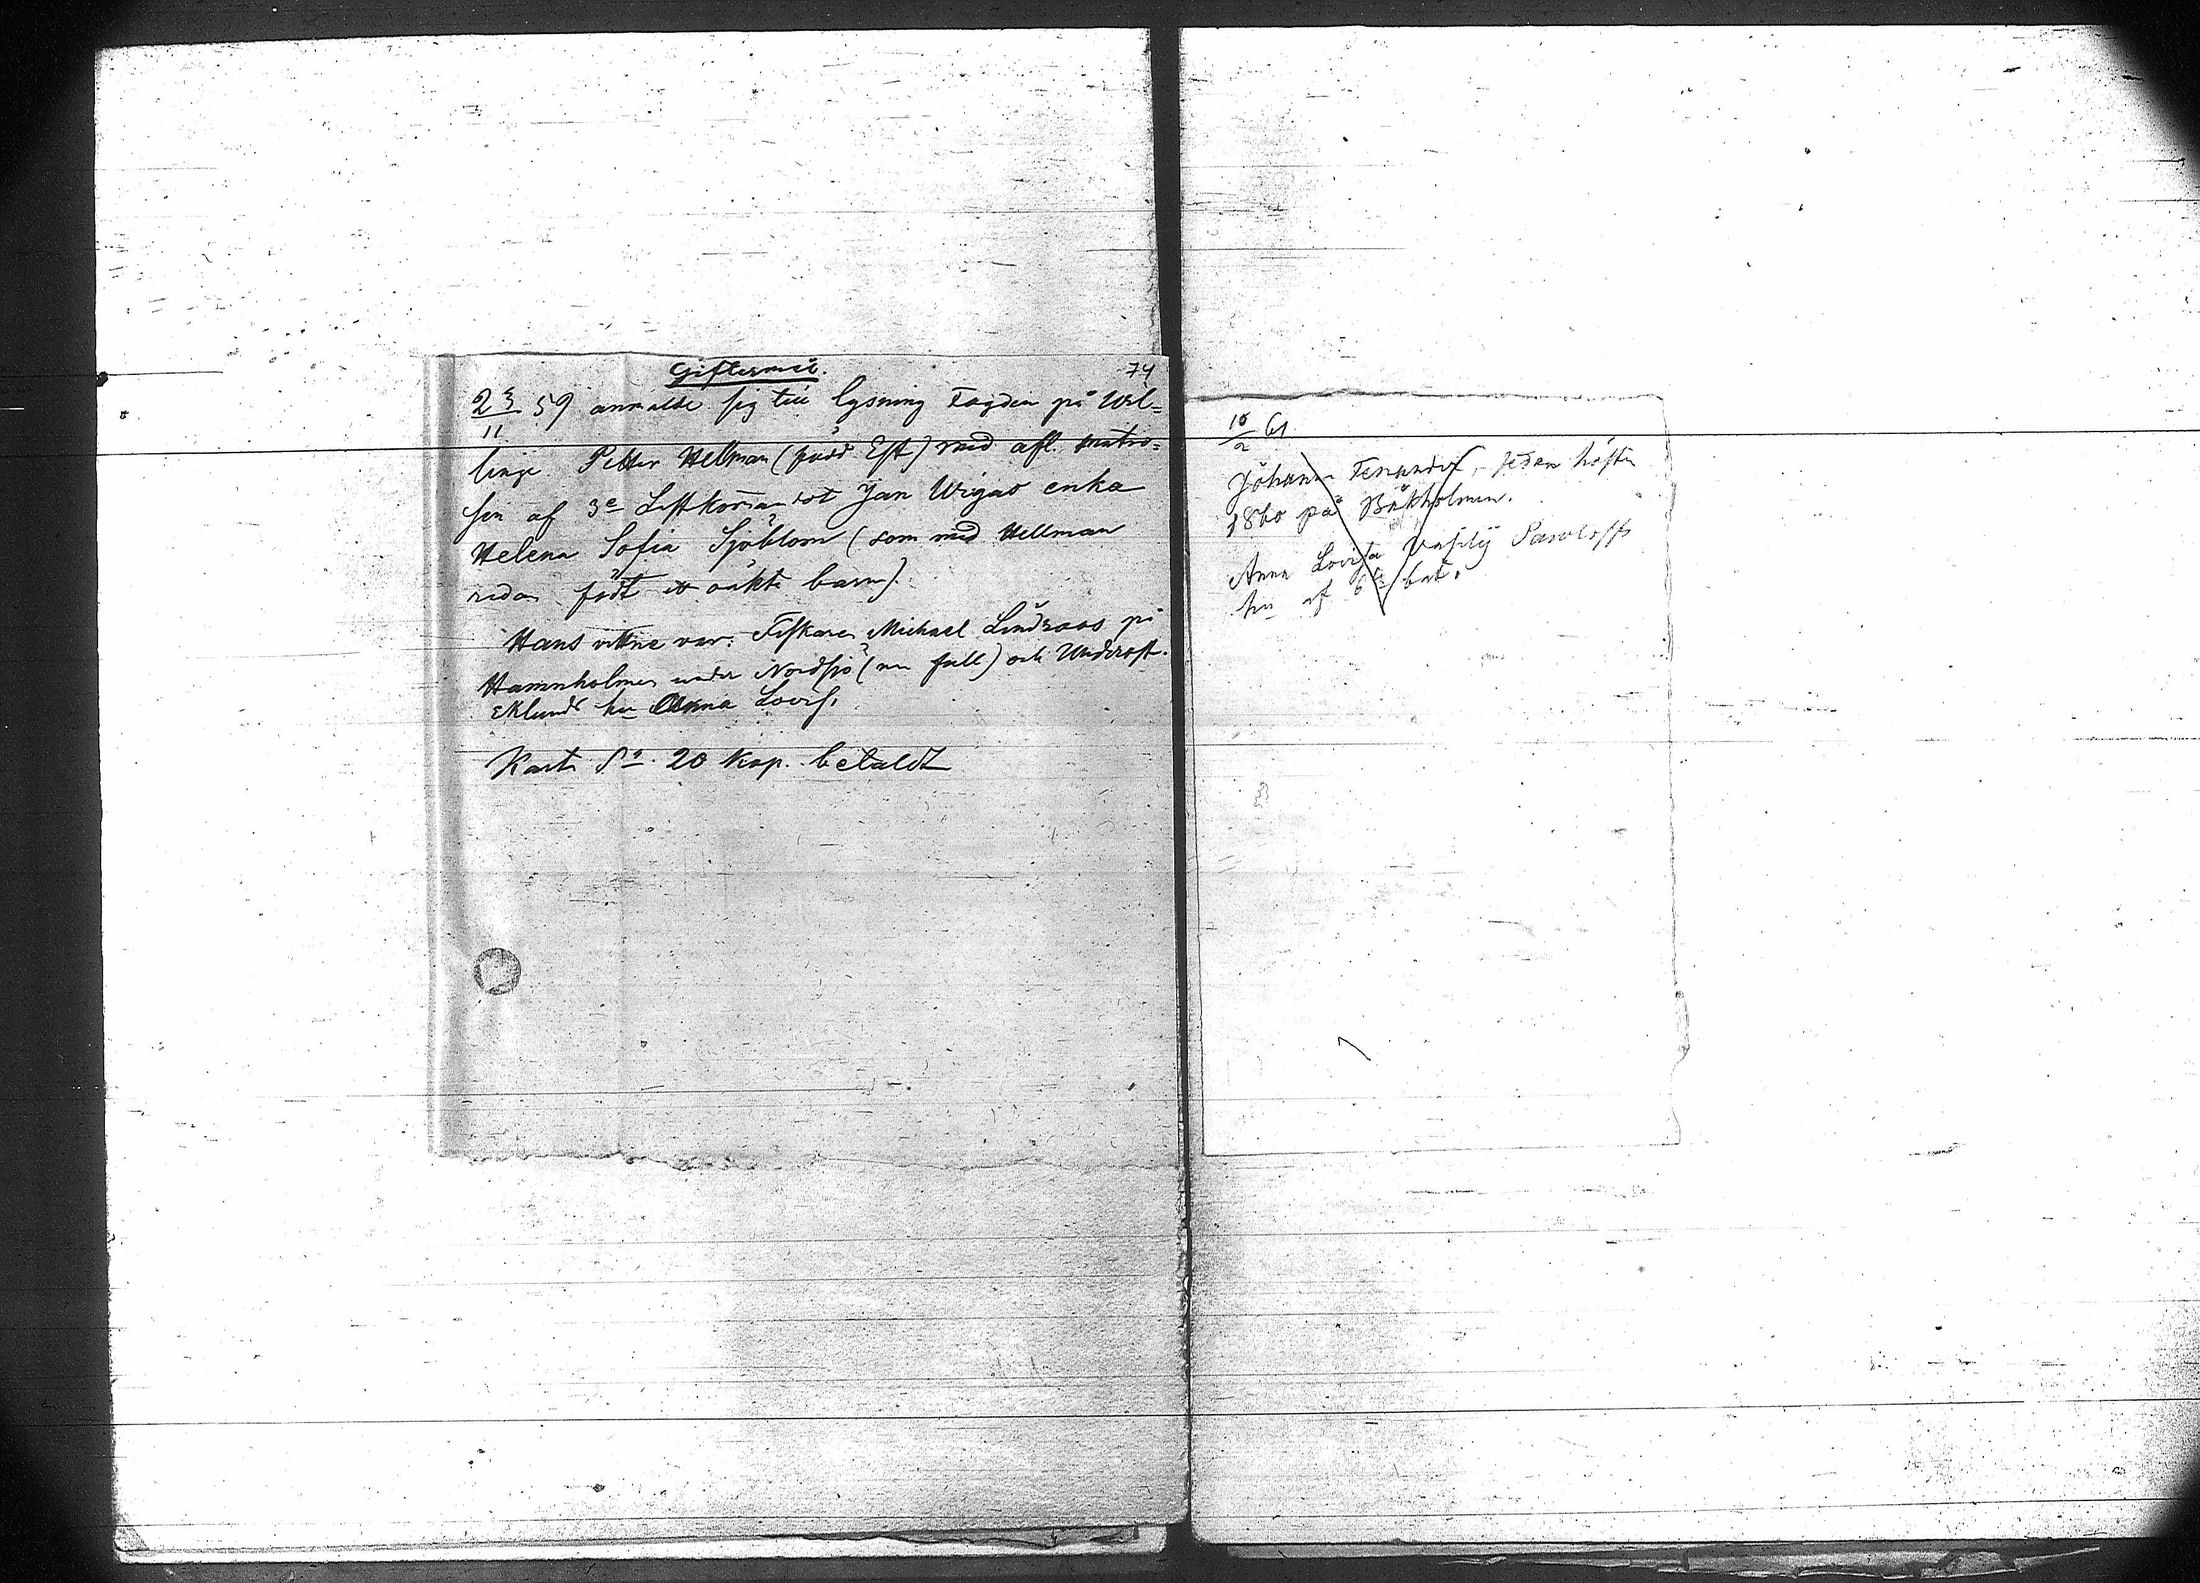 Giftermål.
74
23/11 59 anmälde sig till lysning Fogden på Wil=
linge Petter Hellman (född Est) med afl. matro=
sen af 3e Lastkommandot Jan Wigas enka
Helena Sofia Sjöblom (som med Hellman
redan födt oäkta barn).
Hans vittne var: Fiskaren Michael Lindroos på
Hamnholmen under Nordsjö och Underoff.
Eklunds hu Anna Lovis.
Karta 20 Kop. betaldt
10/2 61
Johanna sedan hösten
1860 på Båkholmen.
Anna Lovisa Vasilij Pawloffs
hu af 6e bat.